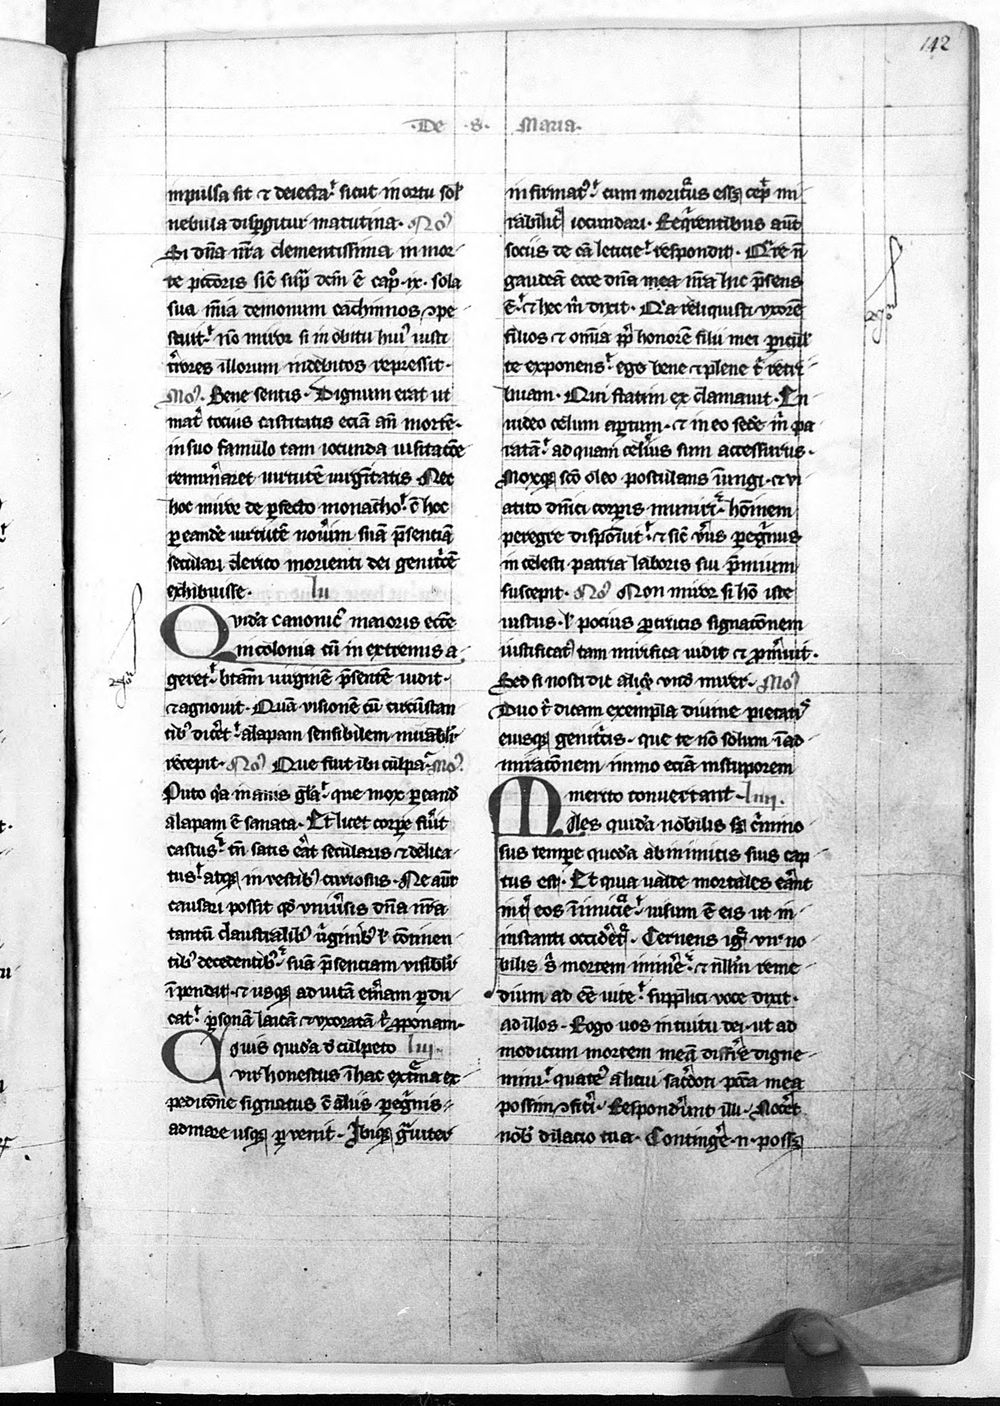 142
·De ·s· Maria·
impulsa sit ⁊ deiecta sicut in ortu sol'
nebula dispgitur matutina· No'
Si dn̄a nr̄a clementissima in mor
te pctoris sic̄ sup dcm̄ ē cap̊·ix· sola
sua mīa demonum cachinnos ↄpe
scuit· nō miror si in obitu hui' iusti
t̄rores illorum indebitos repressit·
Mo'· Bene sentis· Dignum erat ut
mat̄ tocius castitatis eciā an̄ mortē·
in suo famulo tam iocunda uisitacōe
remun̄aret uirtutē uirgi̅tatis Nec
hoc mire de pfecto monacho· c̄ hoc
peande uirtutē nouim suā p̄senciā
seculari clerico morienti dei genit͛cē
exhibuisse· lii
Quidā canonic' maioris ecc̄e
in colonia cū in extremis a
geret· btām uirginē p̄sentē uidit·
⁊ agnouit· Quā visionē cū circūstan
tib' dic̄et· alapam sensibilem mirabil'r
recepit· No' Que fuit ibi culpa· Mo'·
Puto qa inanis gl̄a· que mox peand'
alapam ē sanata· Et licet corpe fūit
castus· tn̄ satis eāt secularis ⁊ delica
tus· atq in vestib' curiosus· Ne aut
causari possit qd' vniūsis dn̄a nr̄a
tantū claustralib' ūginib' l' contien
tib' decedentib'· suā p̄senciam visibil'r
īpendit· ⁊ usq ad uitā et̄nam pdu
cat· psonā laicā ⁊ vxoratā t̄ ꝓponam·
Ciuis quidā d' culpeto liii·
vir honestus ī hac extma ex
pedicōne signatus c̄ aliis pegnis·
ad mare usq puenit· Ibiq gᵃuiter
infirmat'· cum moritᵃus eēt cep̄ mi
rabilit̄ iocundari· Reqͥrentibus aut
sociis de cā leticie· respondit· Qᵃre n̄
gaudeā ecce dn̄a mea īn̄a hic p̄sens
ē· ⁊ hec m̄ dixit· Qᵃa reliquisti vxorē
filios ⁊ om̄ia pp̄ honorē filii mei picul'
te exponens· ego bene ⁊ plene t̄ retri
buam· Qui statim exclamauit· En
uideo celum aptum· ⁊ in eo sedē m̄ pa
ratā· ad quam celius sum accessurus·
Moxq sc̄o oleo postulans īungi· ⁊ vi
atico dn̄ici corpis muniri· hominem
peregre disposuit· ⁊ sic̄ v̄us pegᵃnus
in celesti patria laboris sui p̄mium
suscepit· No' Non miror si hō iste
iustus· l' pocius p crucis signacōnem
iustificat' tam mirifica uidit ⁊ pmuit·
Sed si nosti dic aliqd vnd' mirer· Mo'
Duo t̄ dicam exempla diuine pietatis
eiusq genitcis· que te nō solum ī ad
miracōnem immo eciā in stuporem
merito conuertant· liiii·
Miles quidā nobilis sz cͥmino
sus tempe quodā ab inimicis suis cap
tus est· Et quia ualde mortales eānt
int̄ eos īimicicie· uisum ē eis ut in
instanti occidet· Cernens igͥ vir no
bilis s̄ mortem immīe· ⁊ nllm reme
dium ad ēe vite· supplici voce dixit·
ad illos· Rogo uos intuitu dei· ut ad
modicum mortem meā diffre digne
mini· quaten' alicui sacdoti pcca mea
possim ↄfitri· Responderunt illi· Nocet
nob' dilacio tua· Continge·n·possz